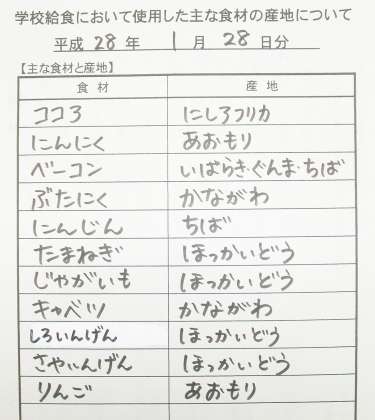 学校給食において使用した主な食材の産地について
平成 28 年 1 月 28 日分
【主な食材と産地】
食材 産地
ココろ にしろフリカ
にんにく あおもり
ベーコン いばらき・ぐんま・ちば
ぶたにく かながわ
にんじん ちば
たまねぎ ほっかいどう
じゃがいも ほっかいどう
キャベツ かながわ
しろいんげん ほっかいどう
さやいんげん ほっかいどう
りんご あおもり